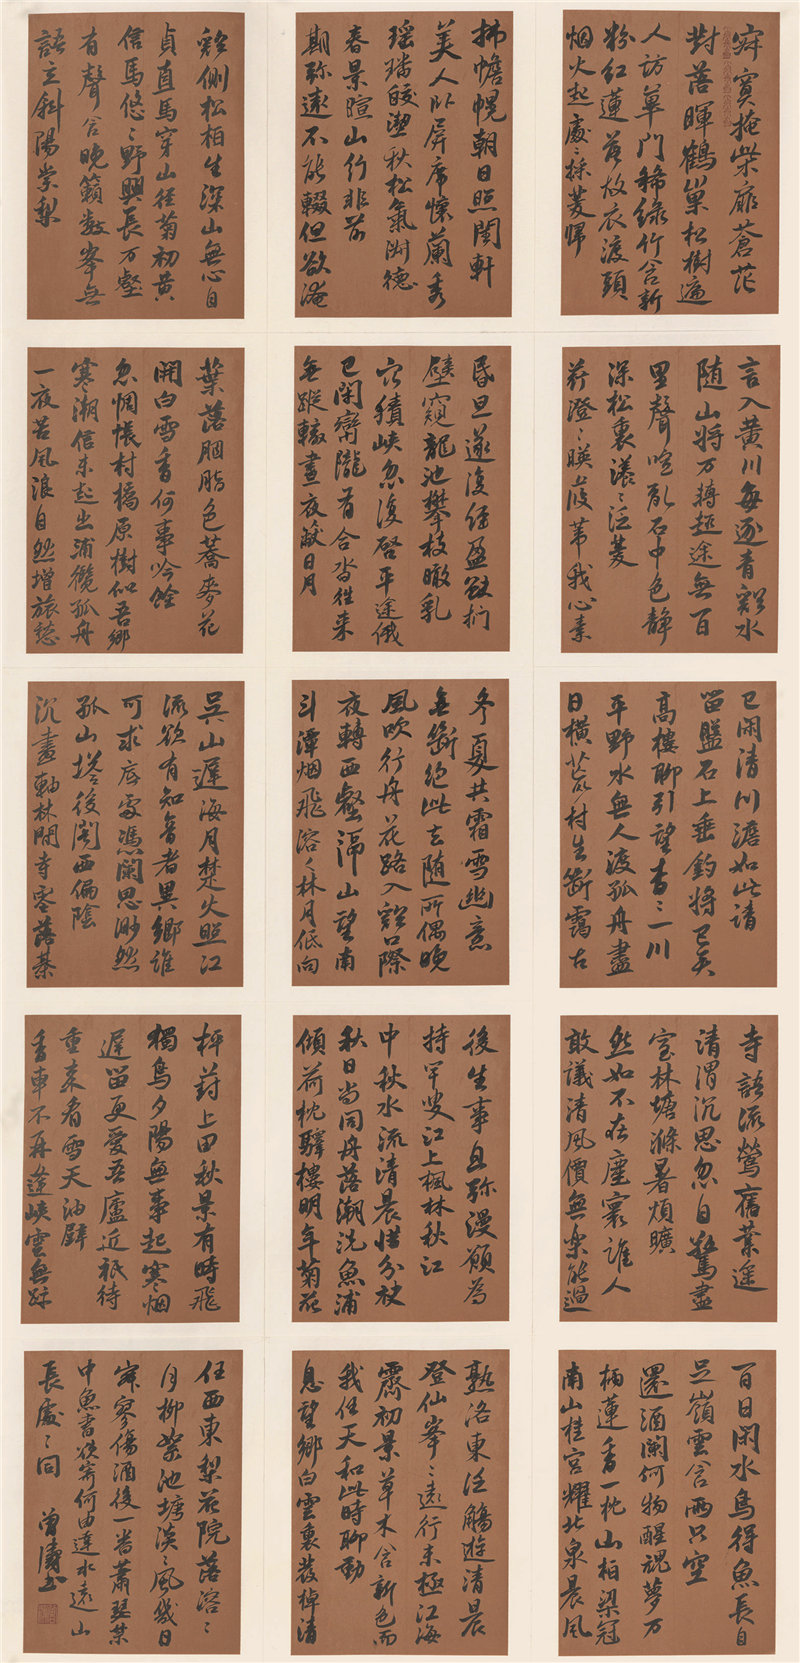 寂寞掩柴扉蒼茫
對落暉鶴巢松樹遍
人訪蓽門稀綠竹含新
粉紅蓮落故衣渡頭
烟火起處〻採菱歸
言入黃川每逐青谿水
隨山將万轉趣途無百
里聲喧亂石中色靜
深松裏漾〻泛菱
荇澄〻暎葭葦我心素
已閑清川澹如此請
留盤石上垂釣將已矣
高樓聊引望杳〻一川
平野水無人渡孤舟盡
日橫荒村生斷靄古
寺語流鶯舊業遙
清渭沉思忽自驚盡
室林塘滌暑煩曠
然如不在塵寰誰人
敢議清風價無樂能過
百日閑水鳥得魚長自
足嶺雲含雨只空
還酒闌何物醒魂夢万
柄蓮香一枕山柏梁冠
南山桂宮耀北泉晨風
拂幨幌朝日照閨軒
美人臥屏席懷蘭秀
瑤璠皎潔秋松氣淑德
春景暄山行非前
期彌遠不能輟但欲淹
昏旦遂復經盈缺捫
壁窺龍池攀枝瞰乳
穴積峽忽復啓平途俄
已閑巒隴有合沓往來
無蹤轍晝夜蔽日月
冬夏共霜雪幽意
無斷絕此去隨所偶晚
風吹行舟花路入谿口際
夜轉西壑隔山望南
斗潭烟飛溶〻林月低向
後生事且彌漫願為
持竿叟江上楓林秋江
中秋水流清晨惜分袂
秋日尚同舟落潮洗魚浦
傾荷枕驛樓明年菊花
熟洛東泛觴遊清晨
登仙峰〻遠行未極江海
霽初景草木含新色而
我任天和此時聊動
息望鄉白雲裏發棹清
谿側松柏生深山無心自
貞直馬穿山徑菊初黃
信馬悠〻野興長万壑
有聲含晚籟數峰無
語立斜陽棠梨
葉落胭脂色蕎麥花
開白雪香何事吟餘
忽惆悵村橋原樹似吾鄉
寒潮信未起出浦纜孤舟
一夜苦風浪自然增旅愁
吳山遲海月楚火照江
流欲有知音者異鄉誰
可求底處憑闌思渺然
孤山塔後閣西偏陰
沉畫軸林間寺零落棊
枰葑上田秋景有時飛
獨鳥夕陽無事起寒烟
遲留更愛吾廬近衹待
重來看雪天油壁
香車不再逢峽雲無跡
任西東梨花院落溶〻
月柳絮池塘淡〻風幾日
寂寥傷酒後一番蕭瑟禁
中魚書欲寄何由達水遠山
長處〻同
曾濤書